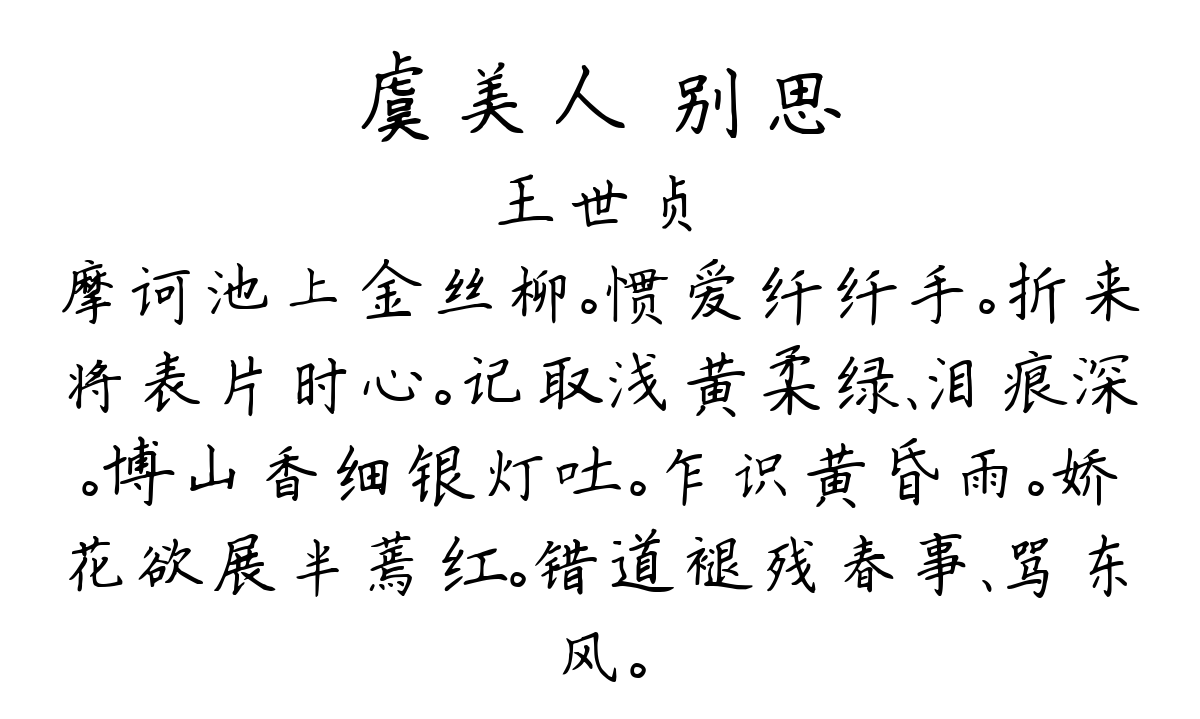 虞美人 别思
王世贞
摩诃池上金丝柳。惯爱纤纤手。折来
将表片时心。记取浅黄柔绿、泪痕深
。博山香细银灯吐。乍识黄昏雨。娇
花欲展半蔫红。错道褪残春事、骂东
风。